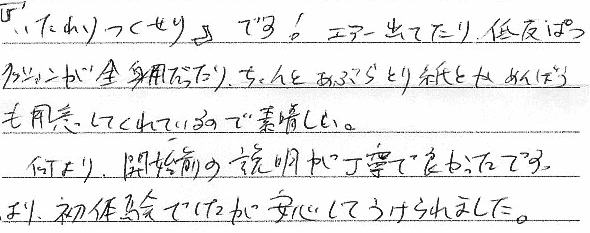 『いたれりつくせり』です! エアー出てたり、低反ぱつ
クッションが全身用だったり、ちゃんとあぶらとり紙とか めんぼう
も用意してくれているので素晴しい。
何より、開始前の説明が丁寧で良かったです。
より、初体験でしたが安心してうけられました。